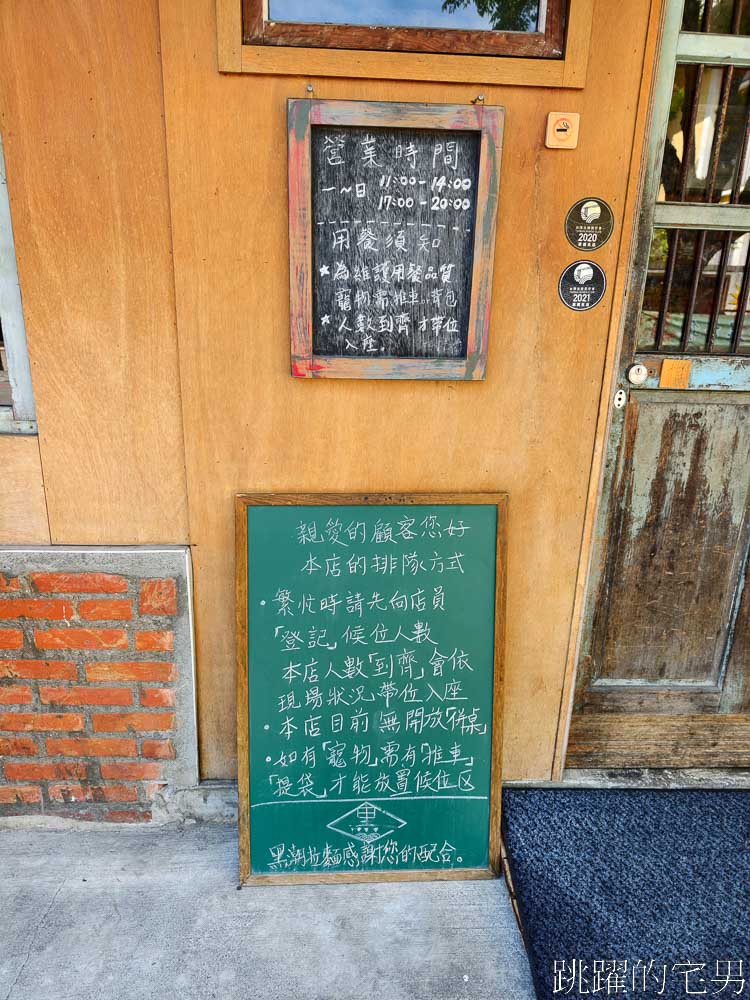 營業時間
一～日 11:00-14:00
17:00-20:00
用餐須知
★為維護用餐品質
寵物需推車.背包
★人數到齊才帶位
入座。
2020
2021
親愛的顧客您好
本店的排隊方式
·繁忙時請先向店員
「登記」候位人數
本店人數「到齊」會依
現場狀況帶位入座
·本店目前無開放「併桌」
·如有「寵物」需有「推車」
「提袋」才能放置候位区
黑潮拉麵感謝您的配合。
跳躍的宅男